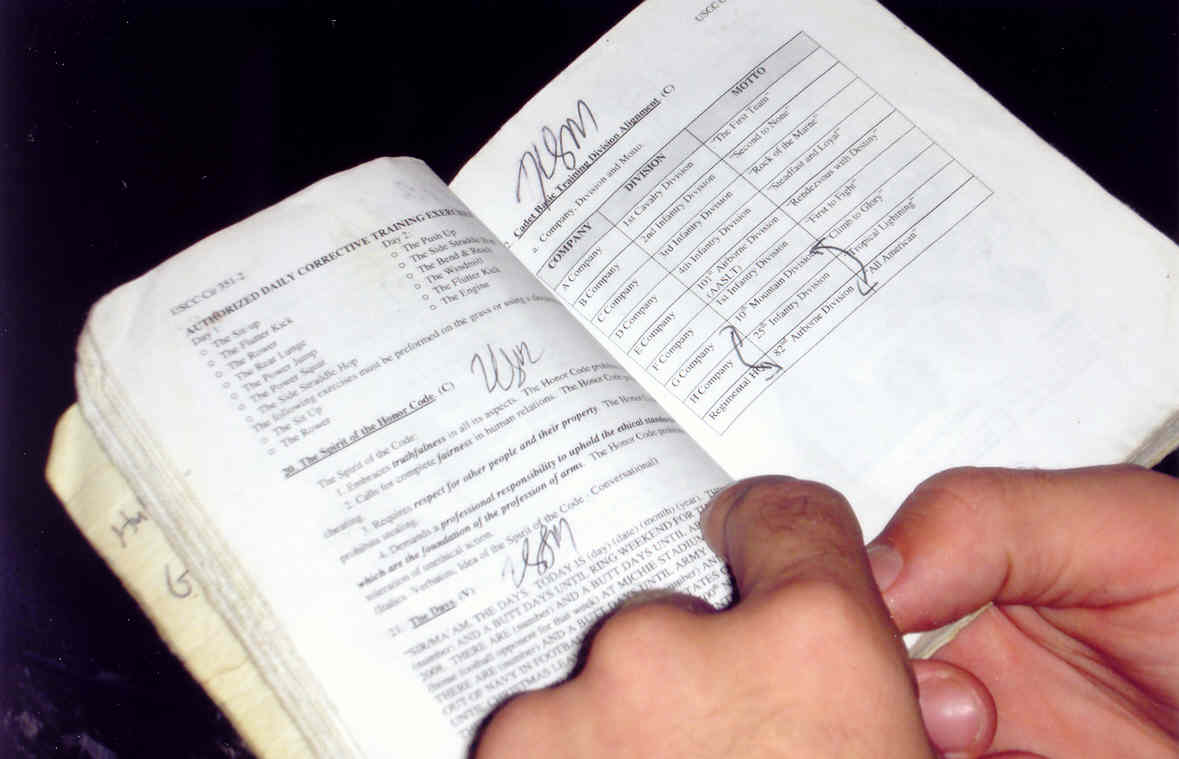 USCC Cir 351-2
AUTHORIZED DAILY CORRECTIVE TRAINING EXERCISES
Day 1:
○ The Sit-up
○ The Flutter Kick
○ The Rower
○ The Rear Lunge
○ The Power Jump
○ The Power Squat
○ The Side Straddle Hop
Day 2:
○ The Push Up
○ The Side Straddle Hop
○ The Bend & Reach
○ The Windmill
○ The Flutter Kick
○ The Engine
The following exercises must be preformed on the grass or using a
○ The Sit Up
○ The Rower
20. The Spirit of the Honor Code. (C)
The Spirit of the Code:
1. Embraces truthfulness in all its aspects. The Honor Code
2. Calls for complete fairness in human relations. The Honor Code
cheating.
3. Requires respect for other people and their property. The Honor
prohibits stealing.
4. Demands a professional responsibility to uphold the ethical
which are the foundation of the profession of arms. The Honor Code
toleration of unethical action.
(Italics - Verbatim. Idea of the Spirit of the Code - Conversational)
21. The Days. (V)
"SIR/MA'AM, THE DAYS. TODAY IS (day) (date) (month) (year).
AND A BUTT DAYS UNTIL RING WEEKEND FOR
THERE ARE (number) AND A BUTT DAYS UNTIL
(name of football opponent for that week) AT MICHIE STADIUM
THERE ARE (number) AND A UNTIL ARMY
OUT OF NAVY IN FOOTBALL
H
G
USCC
Cadet Basic Training Division Alignment. (C)
a. Company, Division and Motto.
COMPANY DIVISION MOTTO
A Company 1st Cavalry Division "The First Team"
B Company 2nd Infantry Division "Second to None"
C Company 3rd Infantry Division "Rock of the Marne"
D Company 4th Infantry Division "Steadfast and Loyal"
E Company 101st Airborne Division (AASLT) "Rendezvous with Destiny"
F Company 1st Infantry Division "First to Fight"
G Company 10th Mountain Division "Climb to Glory"
H Company 25th Infantry Division "Tropical Lightning"
Regimental 82nd Airborne Division "All American"